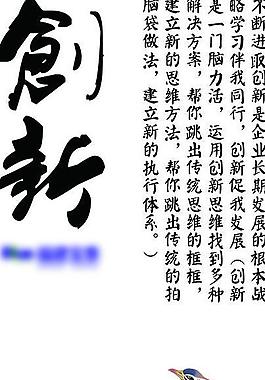 不断进取创新是企业长期发展的根本战
略学习伴我同行，创新促我发展（创新
是一门脑力活，运用创新思维找到多种
解决方案，帮你跳出传统思维的框框，
建立新的思维方法，帮你跳出传统的拍
脑袋做法，建立新的执行体系。）
創新